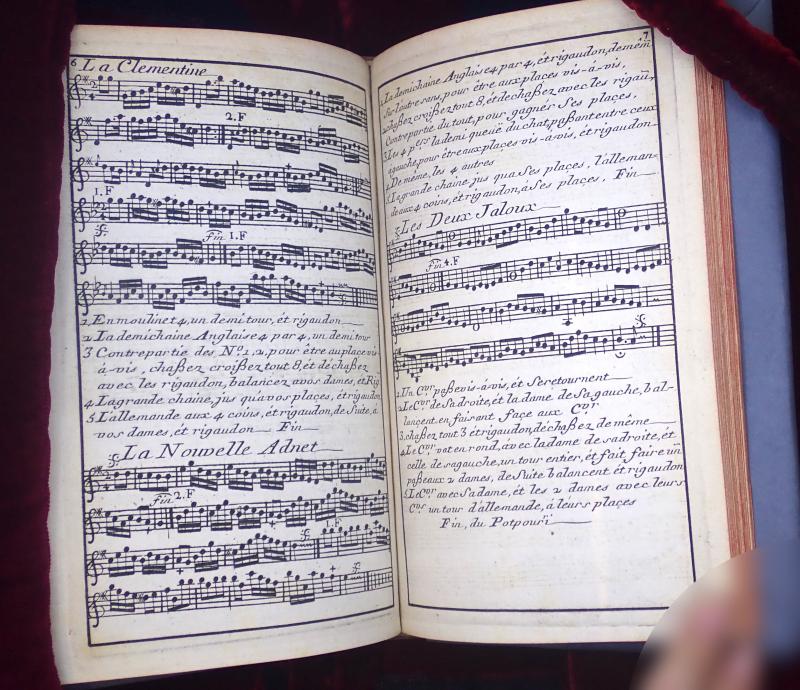 6
La Clementine
2.F
1.F
Fin 1.F
1 En moulinet 4, un demi tour, ét rigaudon
2 La demichaine Anglaise 4 par 4, un demi tour
3 Contrepartie des Nº 1, 2, pour être au place vis-
à-vis, chaßez croißez tout 8, ét déchaßez
avec les rigaudon, balancez avos dames, ét Rig
4 La grande chaine, jus qu'avos places, ét rigaudon
5 L'allemande aux 4 coins, ét rigaudon, de Suite, à
vos dames, ét rigaudon Fin
La Nouvelle Adnet
Fin 2.F
1.F
7
1 La demichaine Anglaise 4 par 4, ét rigaudon, de mêm̄
Sur l'autre sans, pour être aux places vis-à-vis,
2 chaßez croißez tout 8, ét dechaßez avec les rigau,
Contrepartie du tout, pour gagnér Ses places,
3 Les 4 pers la demi queüe du chat, paßant entre ceux
agauche, pour être aux places vis-a-vis, ét rigaudon
4 De même, les 4 autres
5 La grande chaine jus qua Ses places, l'alleman-
de aux 4 coins, ét rigaudon, à Ses places, Fin
Les Deux Jaloux
Fin 4.F
1. Un Cver paße vis-à-vis, ét Se retournent
2 Le Cer de Sa droite, ét la dame de Sa gauche, bal-
lancent, en faisant face aux Cver
3. chaßez tout 3 ét rigaudon, déchaßez de même
4 Le Cer vat en rond, avec la dame de sa droite, ét
celle de sagauche, un tour entier, ét fait faire un
paße aux 2 dames, de Suite balancent ét rigaudon
5 Le Cver avec Sa dame, ét les 2 dames avec leurs
Cers un tour d'allemande, à leurs places
Fin, du Potpouri